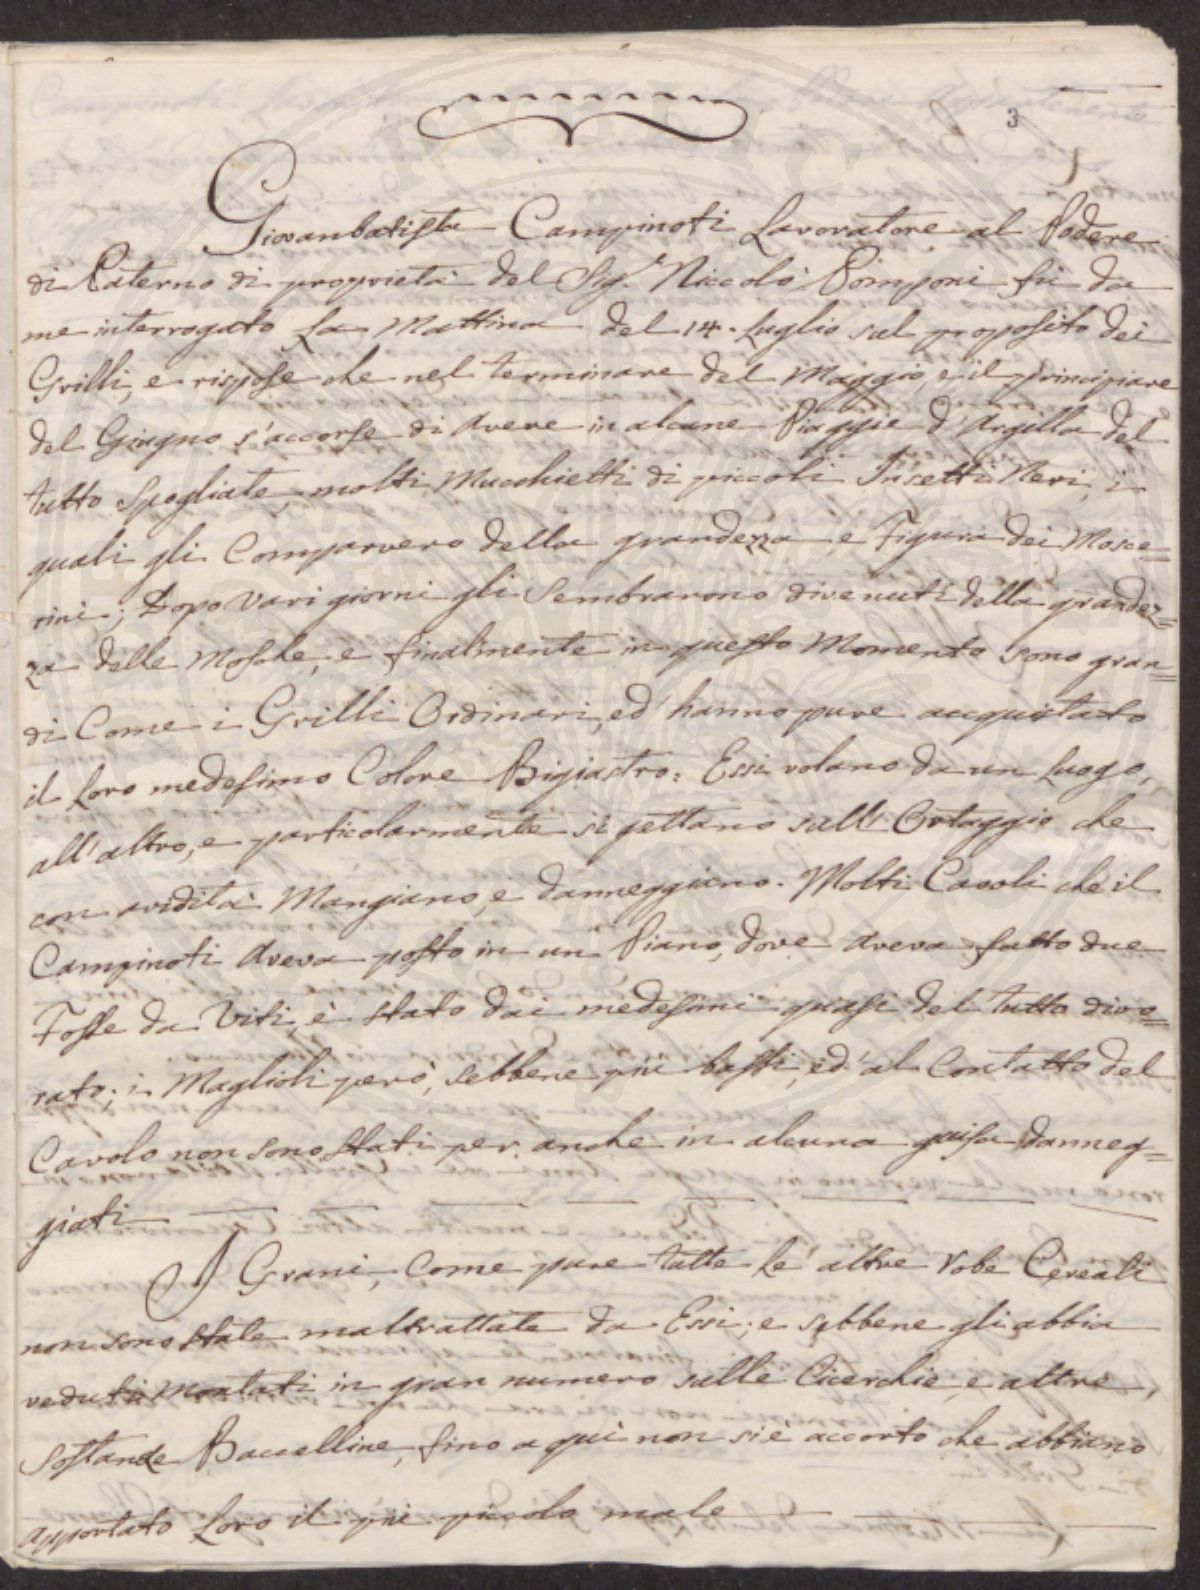 3
Giovanbatista Campinoti Lavoratore al Podere
di Paterno di proprietà del Sig.r Niccolò Pomponi fù da
me interrogato La Mattina del 14. Luglio sul proposito dei
Grilli, e rispose che nel terminare del Maggio, e il principiare
del Giugno s'accorse di Avere in alcune Piaggie d'Argilla del
tutto Spogliate, molti Mucchietti di piccoli Insetti Neri, i
quali gli Comparvero della grandezza e Figura dei Mosce=
rini; Dopo Vari giorni gli Sembrarono divenuti della grandez=
za delle Mosche, e finalmente in questo Momento sono gran=
di Come i Grilli Ordinari, ed' hanno pure acquistato
il Loro medesimo Colore Bigiastro: Essi volano da un Luogo,
all'altro, e particolarmente si gettano sull' Ortaggio che
con avidità Mangiano, e danneggiano. Molti Cavoli che il
Campinoti Aveva posto in un Piano, dove Aveva fatto due
Fosse da Viti, è stato dai medesimi quasi del tutto divo=
rato; i Maglioli però, sebbene più bassi, ed' al Contatto del
Cavolo non sono stati per anche in alcuna guisa danneg=
giati
I Grani, Come pure tutte Le altre robe Cereali
non sono state maltrattate da Essi, e sebbene gli abbia
veduti Montati in gran numero sulle Cicerchie, e altre,
Sostanze Baccelline, fino a qui non si è accorto che abbiano
apportato Loro il più piccolo male